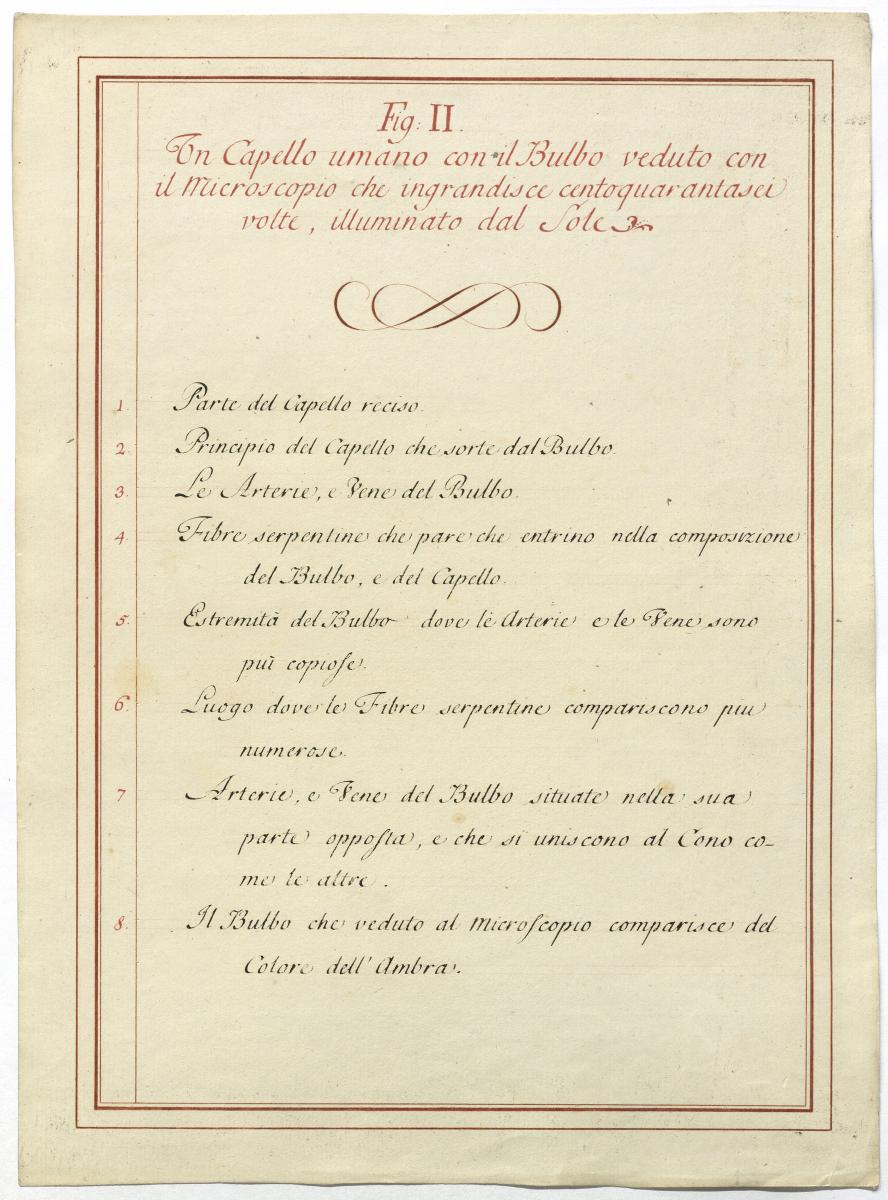 Fig: II.
Un Capello umano con il Bulbo veduto con
il Microscopio che ingrandisce centoquarantasei
volte, illuminato dal Sole
1. Parte del Capello reciso.
2. Principio del Capello che sorte dal Bulbo.
3. Le Arterie, e Vene del Bulbo.
4. Fibre serpentine che pare che entrino nella composizione
del Bulbo, e del Capello.
5. Estremità del Bulbo dove le Arterie e le Vene sono
più copiose.
6. Luogo dove le Fibre serpentine compariscono piu
numerose.
7 Arterie, e Vene del Bulbo situate nella sua
parte opposta, e che si uniscono al Cono co-
me le altre.
8. Il Bulbo che veduto al Microscopio comparisce del
Colore dell'Ambra.